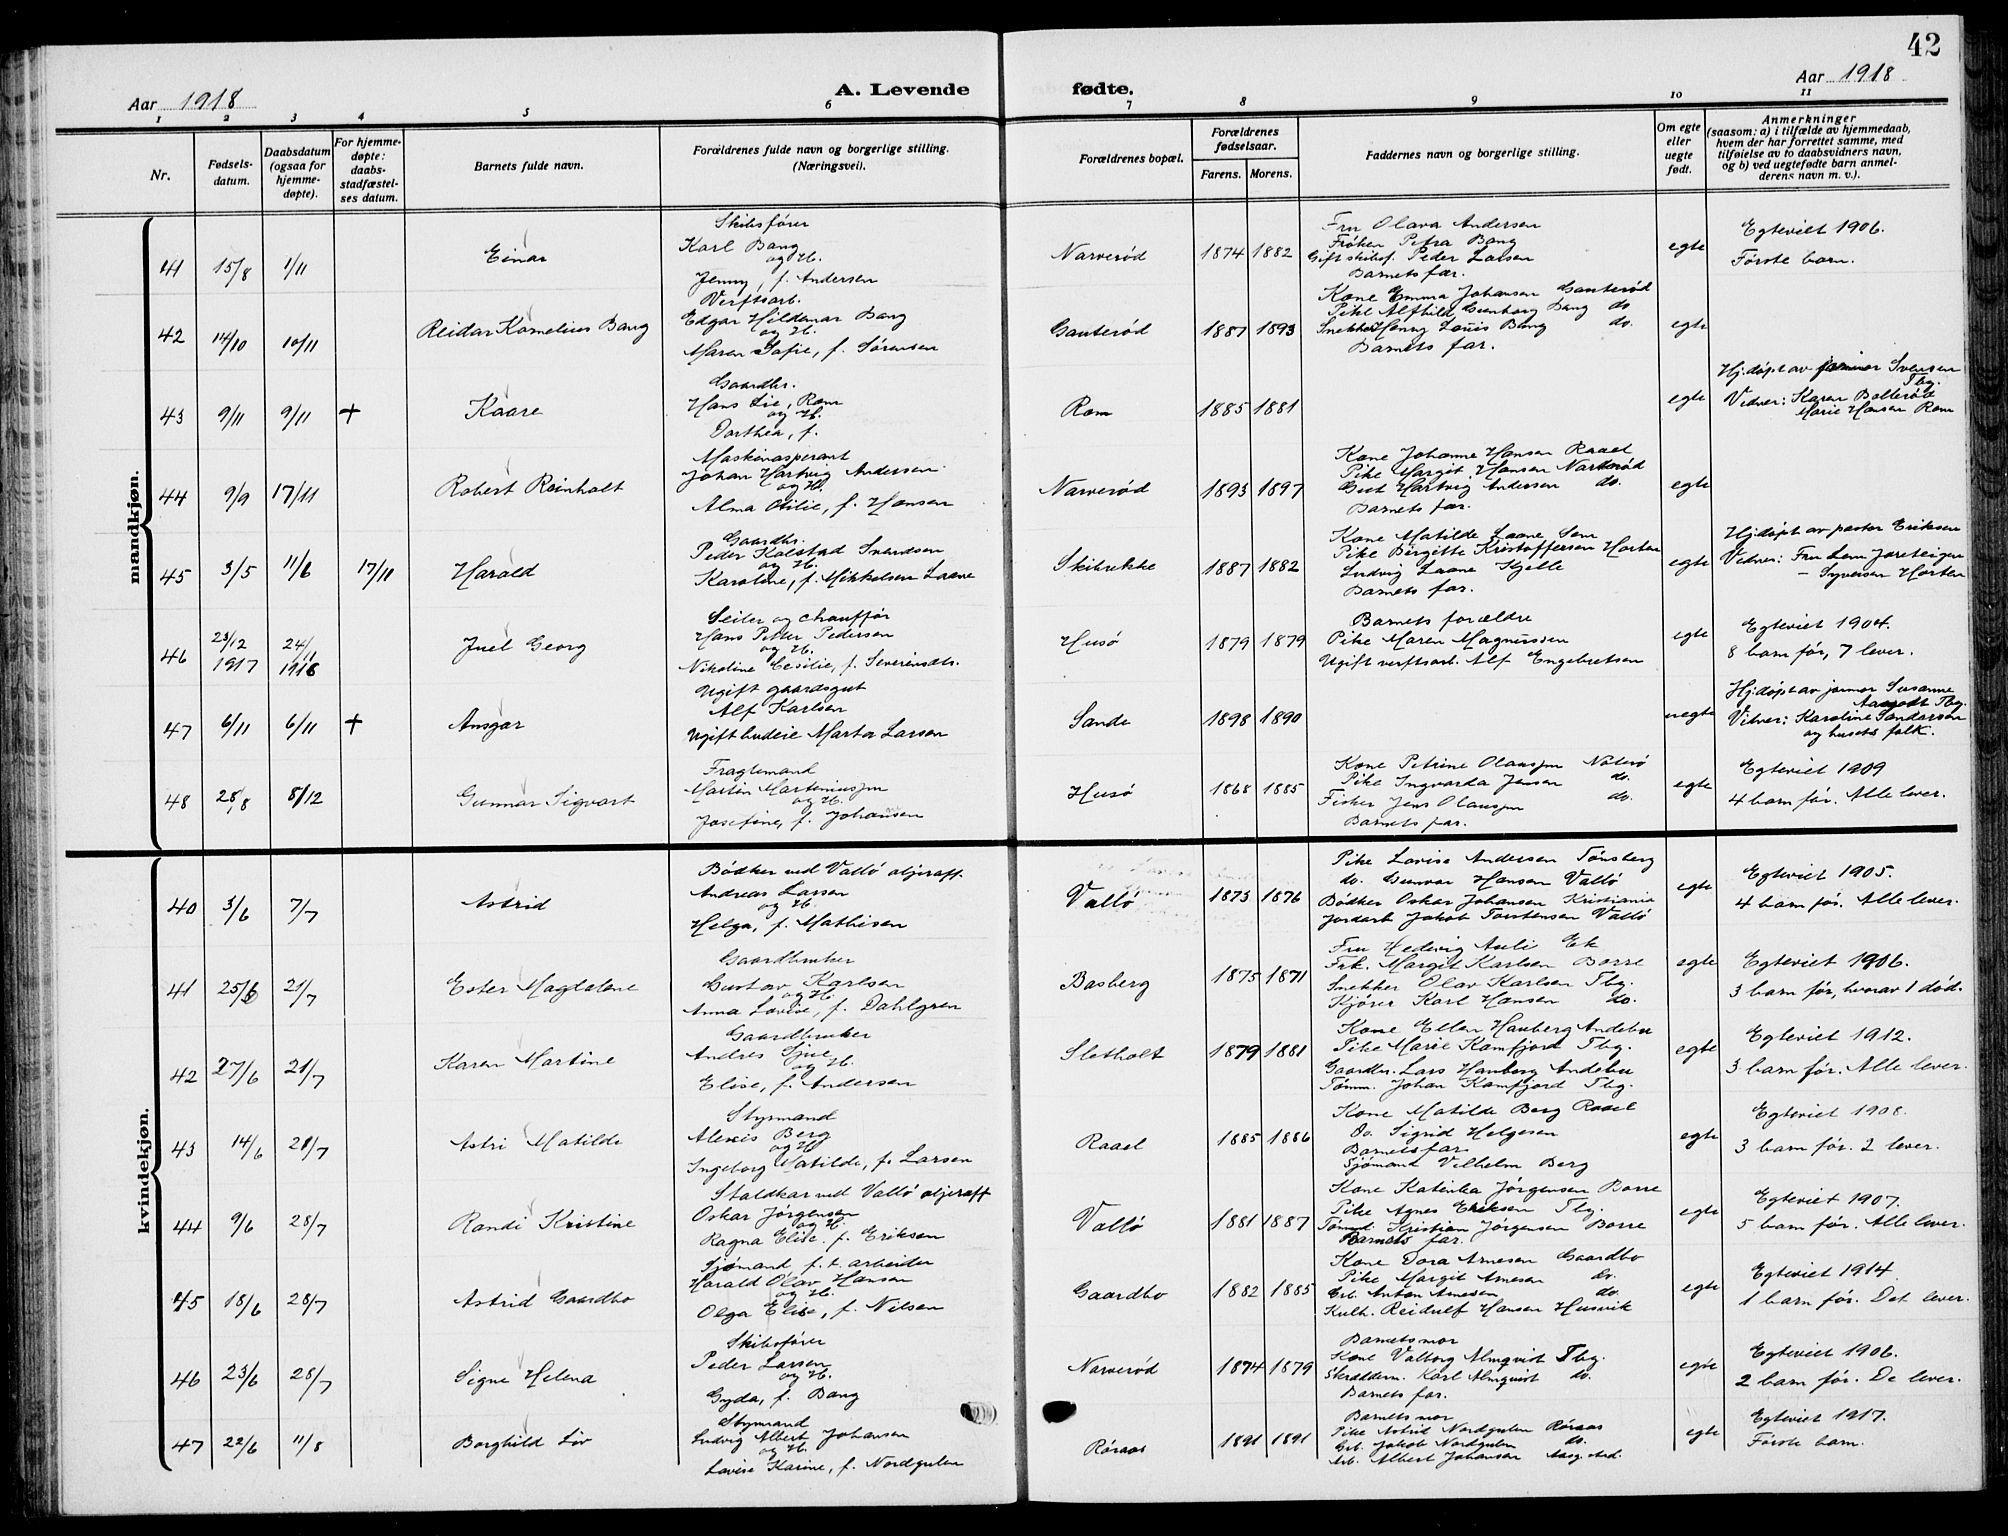 42
Aar 1918
A. Levende
fødte.
Aar 1918
1 2 3 4 5 6 7 8 9 10 11
Nr.
Fødsels-
datum.
Daabsdatum
(ogsaa for
hjemme-
døpte).
For hjemme-
døpte:
daabs-
stadfæstel-
ses datum.
Barnets fulde navn.
Forældrenes fulde navn og borgerlige stilling.
(Næringsvei).
Forældrenes bopæl.
Forældrenes
fødselsaar.
Farens. Morens.
Faddernes navn og borgerlige stilling.
Om egte
eller
uegte
født.
Anmerkninger
(saasom: a) i tilfælde av hjemmedaab,
hvem der har forrettet samme, med
tilføielse av to daabsvidners navn,
og b) ved uegtefødte barn anmel-
derens navn m. v.).
mandkjøn.
41 15/8 1/11 Einar
Skibsfører
Karl Bang
og H.
Jenny, f. Andersen
Narverød 1874 1882
Fru Olava Andersen
Frøken Petra Bang
Gift skibsf. Peder Larsen
Barnets far.
egte
Egteviet 1906.
Første barn.
42 14/10 10/11 Reidar Kornelius Bang
Verftsarb.
Edgar Hildemar Bang
og H.
Maren Sofie, f. Sørensen
Gauterød 1887 1893
Kone Emma Johansen Gauterød
Pike Alfhild Bang do
Snekker Henny Louis Bang do.
Barnets far.
egte
43 9/11 9/11 + Kaare
Gaardbr.
Hans Lie, Rom
og H.
Dorthea, f.
Rom 1885 1881
egte
Hj.døpt av jormor Svensen
Tbg.
Vidner: Karen Bollerød
Marie Hansen Rom
44 9/9 17/11 Robert Reinholt
Maskinaspirant
Johan Hartvig Andersen
og H.
Alma Otilie, f. Hansen
Narverød 1893 1897
Kone Johanne Hansen Raael
Pike Margit Hansen Narverød
Gut Hartvig Andersen do.
Barnets far.
egte
45 3/5 11/6 17/11 Harald
Gaardbr.
Peder Kolstad Svendsen
og H.
Karoline, f. Mikkelsen Laane
Skibrekke 1887 1882
Kone Matilde Laane Sem
Pike Birgitte Kristoffersen Horten
Ludvig Laane Kjelle
Barnets far.
egte
Hj.døpt av pastor Eriksen
Vidner: Fru Lem Jareteigen
— Syversen Horten
46 23/12 1917 24/11 1918 Juel Georg
Seiler og chauffør
Hans Petter Pedersen
og H.
Nikoline Cesilie, f. Severinsdt.
Husø 1879 1879
Barnets forældre
Pike Maren Magnussen
Ugift verftsarb. Alf Engebretsen
egte
Egteviet 1904.
8 barn før, 7 lever.
47 6/11 6/11 + Ansgar
Ugift gaardsgut
Alf Karlsen
Ugift budeie Marta Larsen
Sande 1898 1890
uegte
Hj.døpt av jormor Susanne
Aagodt Tbg.
Vidner: Karoline Sandersen
og husets folk.
48 28/8 8/12 Gunnar Sigvart
Fragtemand
Martin Martiniussen
og H.
Josefine, f. Johansen
Husø 1868 1885
Kone Petrine Olaussen Nøterø
Pike Ingvarda Jensen do.
Fisker Jens Olaussen do.
Barnets far.
egte
Egteviet 1909
4 barn før. Alle lever.
kvindekjøn.
40 3/6 7/7 Astrid
Bødker ved Vallø oljeraff.
Andreas Larsen
og H.
Helga, f. Mathisen
Vallø 1873 1876
Pike Lovise Andersen Tønsberg
do. Gunvor Hansen Vallø
Bødker Oskar Johansen Kristiania
Jordarb Jakob Torstensen Vallø
egte
Egteviet 1905.
4 barn før. Alle lever.
41 25/6 21/7 Ester Magdalene
Gaardbruker
Gustav Karlsen
og H.
Anna Lovise, f. Dahlgren
Basberg 1875 1871
Fru Hedevig Auli Ek
Frk. Margit Karlsen Borre
Snekker Olav Karlsen Tbg.
Kjører Karl Hansen do.
egte
Egteviet 1906.
3 barn før, hvorav 1 død.
42 27/6 21/7 Karen Martine
Gaardbruker
Andres Sjue
og H.
Elise, f. Andersen
Sletholt 1879 1881
Kone Ellen Hauberg Andebu
Pike Marie Kamfjord Tbg.
Gaardbr. Lars Hauberg Andebu
Tømm. Johan Kamfjord Tbg.
egte
Egteviet 1912.
3 barn før. Alle lever.
43 14/6 21/7 Astri Matilde
Styrmand
Alexis Berg
og H.
Ingeborg Matilde, f. Larsen
Raael 1885 1886
Kone Matilde Berg Raael
Do. Sigrid Helgesen
Barnets far
Sjømand Vilhelm Berg
egte
Egteviet 1908.
3 barn før. 2 lever.
44 9/6 28/7 Randi Kristine
Staldkar ved Vallø oljeraff
Oskar Jørgensen
og H.
Ragna Elise, f. Eriksen
Vallø 1881 1887
Kone Katinka Jørgensen Borre
Pike Agnes Eriksen Tbg.
Tømd. Kristian Jørgensen Borre
Barnets far.
egte
Egteviet 1907.
5 barn før. Alle lever.
45 18/6 28/7 Astrid Gaardbo
Sjømand f. t. arbeider
Harald Olav Hansen
og H.
Olga Elise, f. Nilsen
Gaardbo 1882 1885
Kone Dora Arnesen Gaardbo
Pike Margit Arnesen do.
Erb. Anton Arnesen do.
Kulh. Reidulf Hansen Husvik
egte
Egteviet 1914
1 barn før. Det lever.
46 23/6 28/7 Signe Helena
Skibsfører
Peder Larsen
og H.
Gyda, f. Bang
Narverød 1874 1879
Barnets mor
Kone Valborg Almqvist Tbg.
Skræddern. Karl Almqvist do.
Barnets far.
egte
Egteviet 1906.
2 barn før. De lever.
47 22/6 11/8 Borghild Liv
Styrmand
Ludvig Albert Johansen
og H.
Lovise Karine, f. Nordgulen
Røraas 1891 1891
Barnets mor
Pike Astrid Nordgulen Røraas
Erb. Jakob Nordgulen do.
Arb. Albert Johansen Aasg.std.
egte
Egteviet 1917.
Første barn.